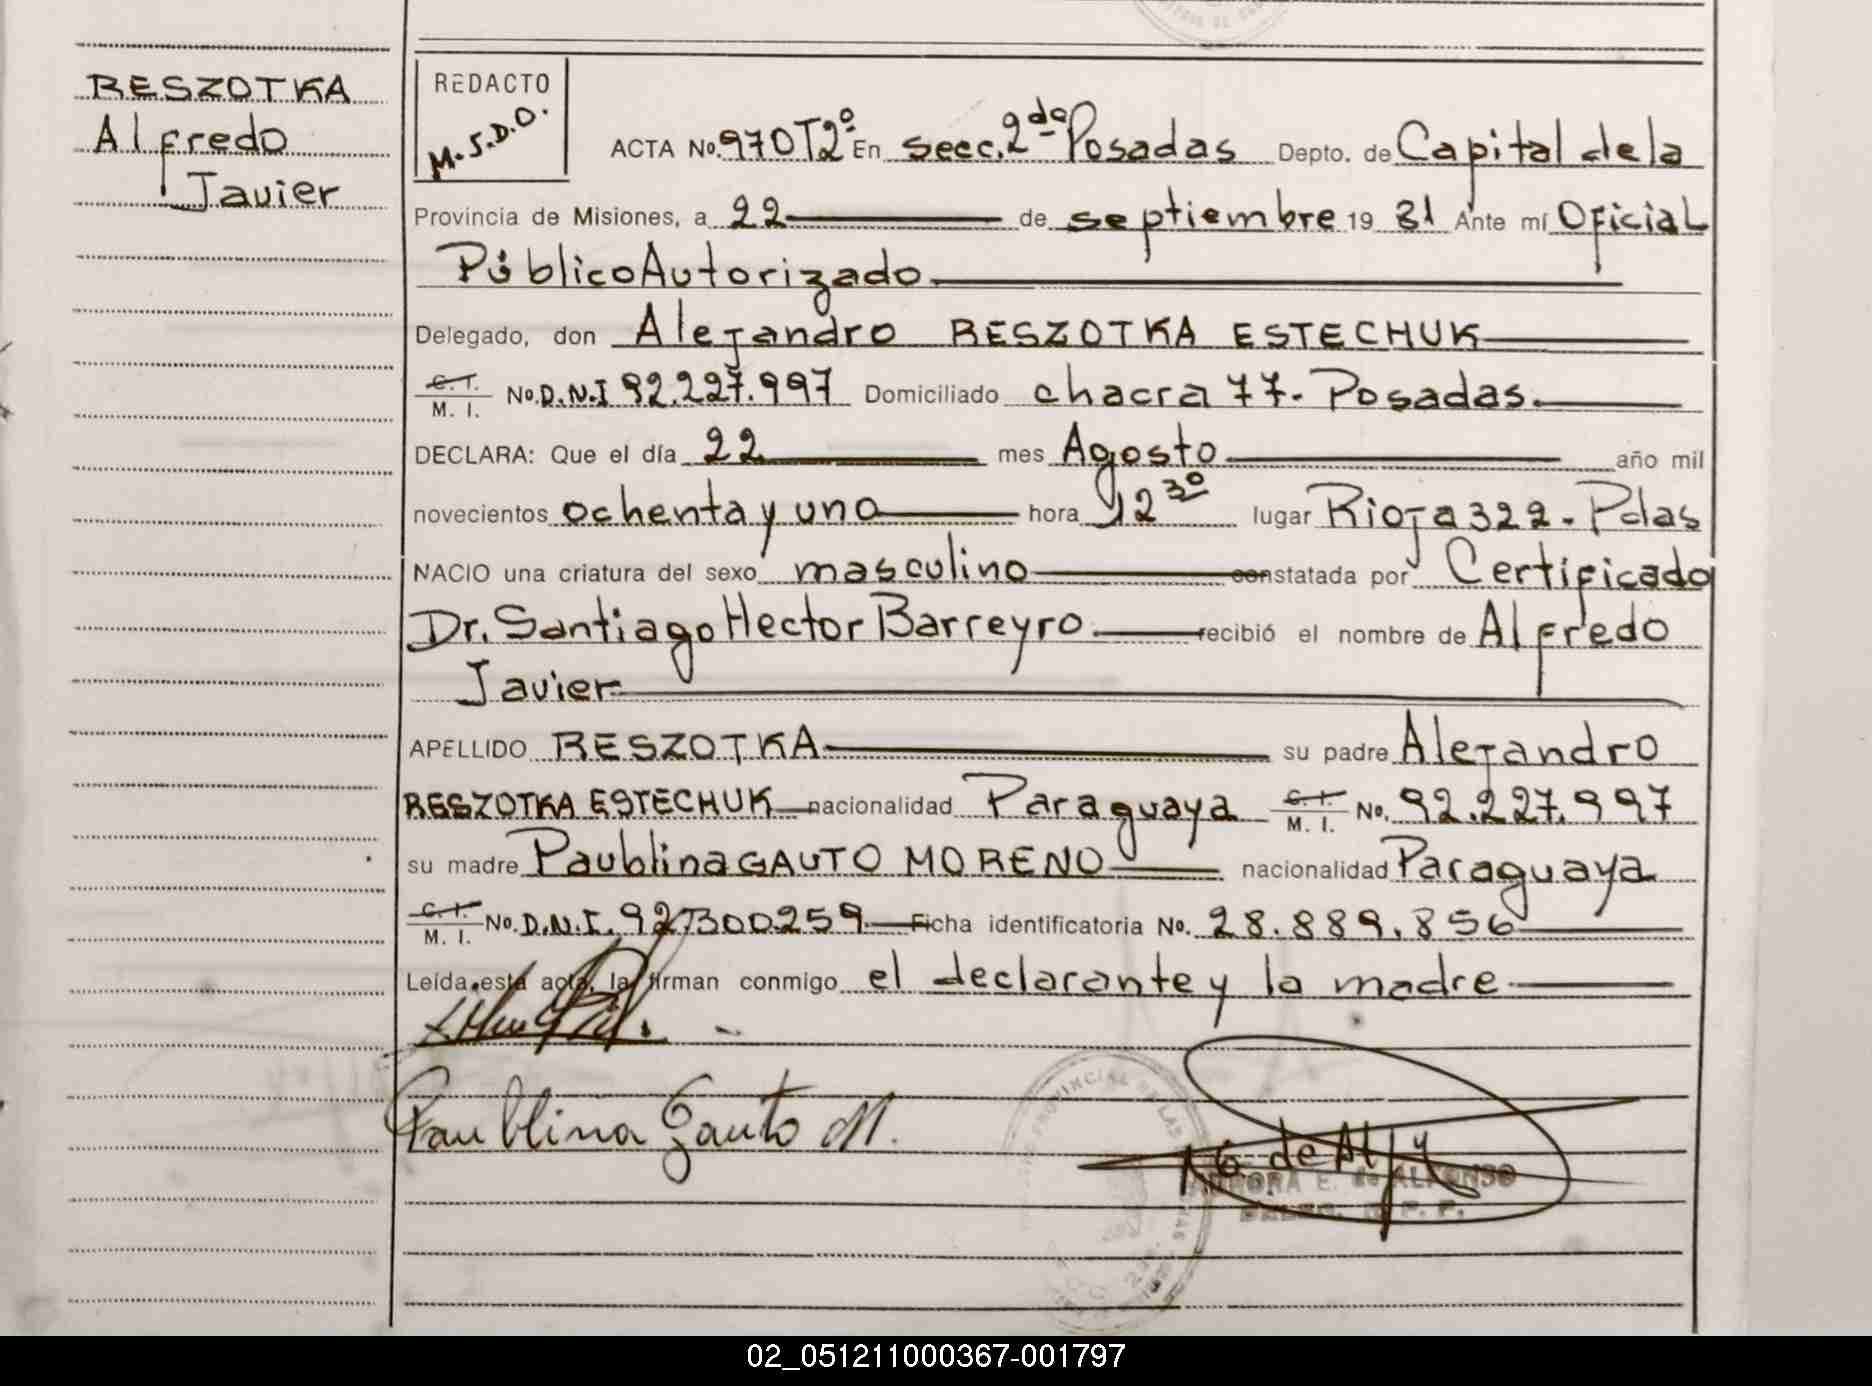 RESZOTKA
Alfredo
Javier
REDACTO
M.S.D.O.
ACTA No. 970 T2º En secc. 2da Posadas Depto. de Capital de la
Provincia de Misiones, a 22 de septiembre 19 81 Ante mí Oficial
Público Autorizado
Delegado, don Alejandro RESZOTKA ESTECHUK
C.I. M. I. No. D.N.I 92.227.997 Domiciliado chacra 77- Posadas.
DECLARA: Que el día 22 mes Agosto año mil
novecientos ochenta y uno hora 12 30 lugar Rioja 322 - Pdas
NACIO una criatura del sexo masculino constatada por Certificado
Dr. Santiago Hector Barreyro. recibió el nombre de Alfredo
Javier
APELLIDO RESZOTKA su padre Alejandro
RESZOTKA ESTECHUK nacionalidad Paraguaya C.I. M. I. No. 92.227.997
su madre Paublina GAUTO MORENO nacionalidad Paraguaya
C.I. M. I. No. D.N.I. 92300259 Ficha identificatoria No. 28.889.856
Leída esta acta, la firman conmigo el declarante y la madre
Paublina Gauto M.
PROVINCIAL DE LAS
AURORA E. de ALFONSO
02_051211000367-001797